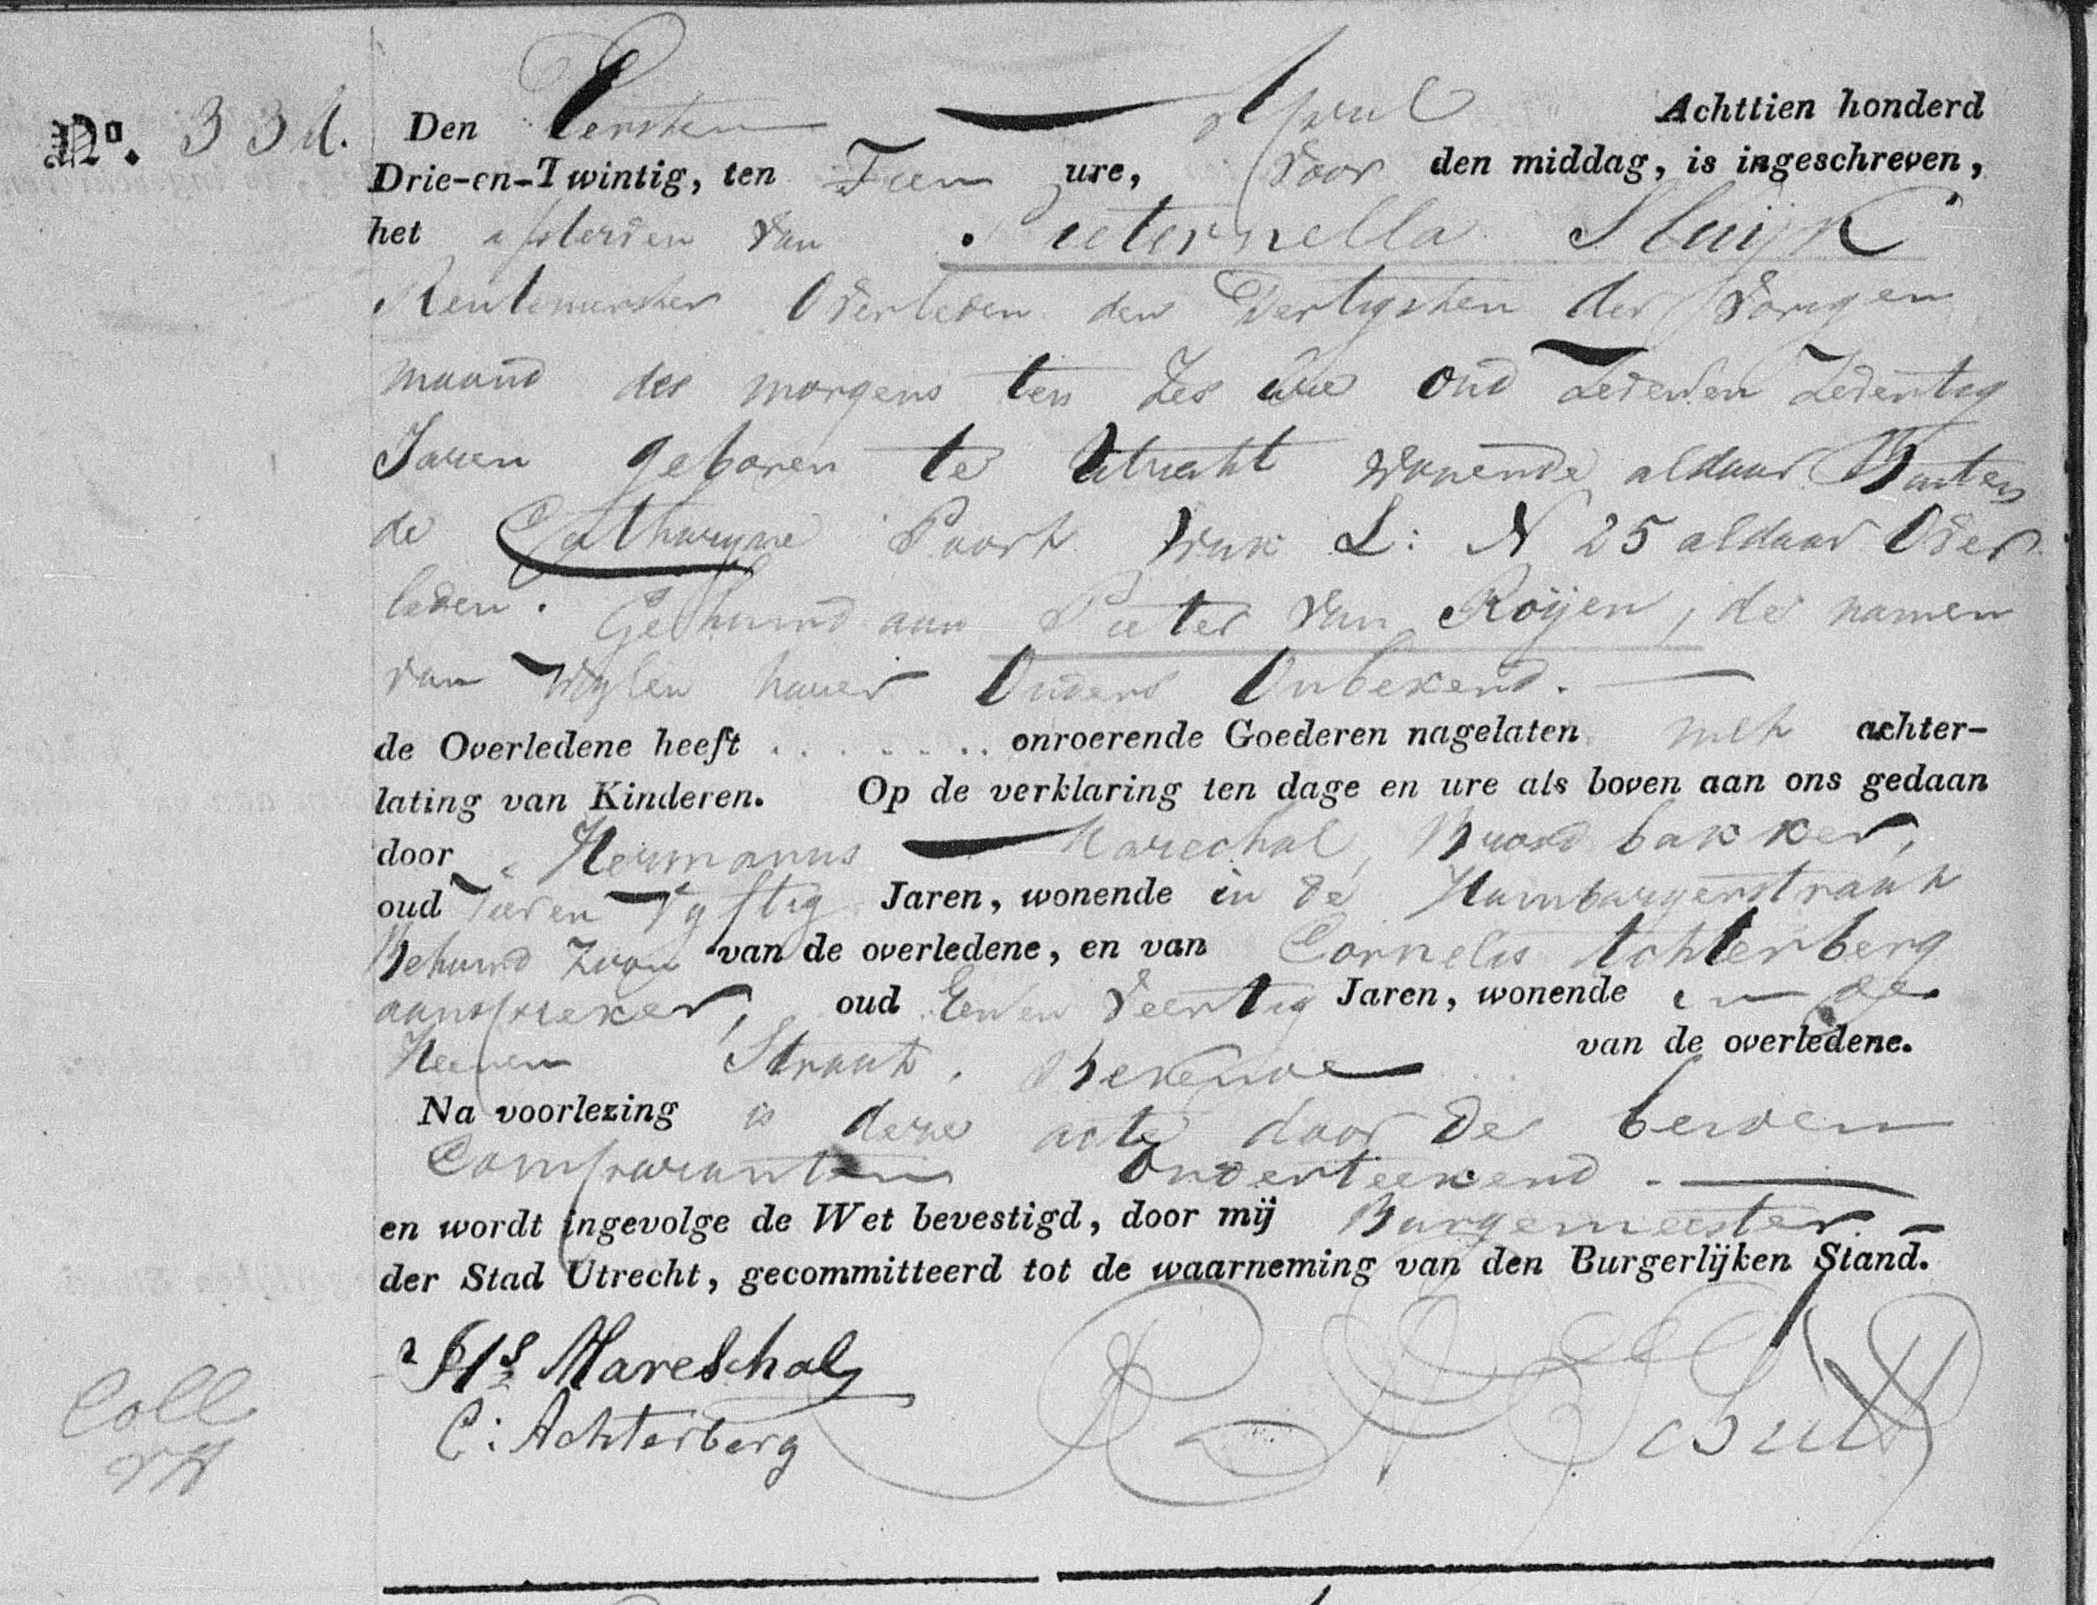 No. 334.
Den Eersten April Achttien honderd
Drie-en-Twintig, ten Tien ure, Voor den middag, is ingeschreven,
het afsterven van Pieternella Sluijk
Renteniersher Overleden den Dertigsten der Vorigen
maand des morgens ten Zes Ure oud Zevenen Zeventig
Jaren geboren te Utrecht wonende aldaar Buiten
de Catharyne Poort Wyk L: N 25 aldaar Over
leden. Gehuwd aan Pieter Van Roijen, de namen
van Wylen haner Ouders Onbekend.
de Overledene heeft . . . . . . . . onroerende Goederen nagelaten met achter-
lating van Kinderen. Op de verklaring ten dage en ure als boven aan ons gedaan
door Hermanus Marechal, Brood bakker,
oud Vijftig Jaren, wonende in de Hamburgerstraat
Behuwd Zoon van de overledene, en van Cornelis Achterberg
aanspreker, oud Eenen Veertig Jaren, wonende in de
Heeren Straat. Bekende van de overledene.
Na voorlezing is deze acte door de beiden
Comparanten Onderteekend.
en wordt ingevolge de Wet bevestigd, door mij Burgemeester
der Stad Utrecht, gecommitteerd tot de waarneming van den Burgerlijken Stand.
Hs Mareschal
C: Achterberg
Coll